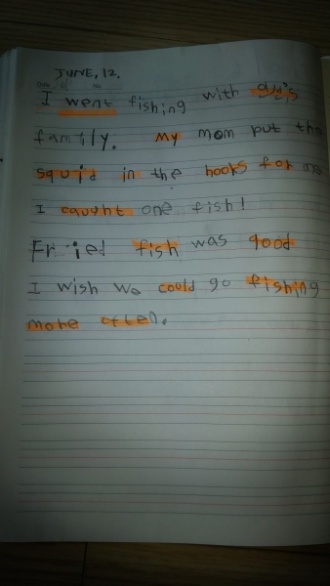 JUNE, 12.
I went fishing with
family. My mom put the
squid in the hooks for me
I caught one fish!
Fried fish was good
I wish we could go fishing
more often.